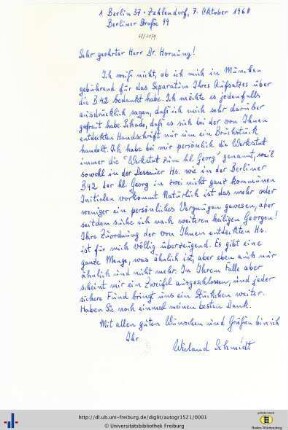 1 Berlin 37 - Zehlendorf, 7. Oktober 1968
Berliner Straße 19
Sehr geehrter Herr Dr. Hornung!
Ich weiß nicht, ob ich mich in München
gebührend für das Separatum Ihres Aufsatzes über
die B 42 bedankt habe. Ich möchte es jedenfalls
ausdrücklich sagen, daß ich mich sehr darüber
gefreut habe. Schade, daß es sich bei der von Ihnen
entdeckten Handschrift nur um ein Bruchstück
handelt. Ich habe bei mir persönlich die Werkstatt
immer die "Werkstatt zum hl. Georg" genannt, weil
sowohl in der Dessauer Hs. wie in der Berliner
B 42 der hl. Georg in von nicht ganz gemeinen
Initialen vorkommt. Natürlich ist das mehr oder
weniger ein persönliches Vergnügen gewesen, aber
seitdem suche ich nach weiteren heiligen Georgen!
Ihre Zuordnung der von Ihnen entdeckten Hs.
ist für mich völlig überzeugend. Es gibt eine
ganze Menge, was ähnlich ist, aber eben auch nur
ähnlich und nicht mehr. In Ihrem Falle aber
scheint mir ein Zweifel ausgeschlossen, und jeder
sichere Fund bringt uns ein Stückchen weiter.
Haben Sie noch einmal meinen besten Dank.
Mit allen guten Wünschen und Grüßen bin ich
Ihr
Wieland Schmidt
http://dl.ub.uni-freiburg.de/diglit/autogr3521/0001
© Universitätsbibliothek Freiburg